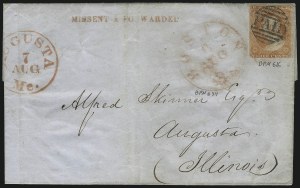 MISSENT & FORWARDED
AUGUSTA
7
AUG
Me.
PAID
Alfred Skinner Esqr.
Augusta
(Illinois)